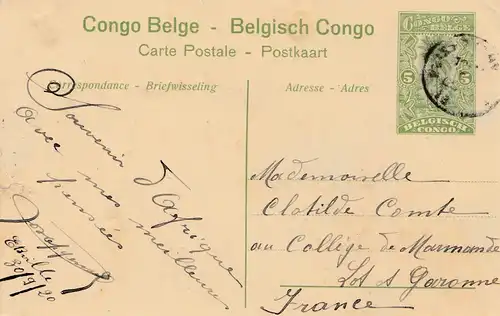 Congo Belge - Belgisch Congo
Carte Postale - Postkaart
Correspondance - Briefwisseling
Adresse - Adres
CONGO
BELGE
5 5
BELGISCH
CONGO
Souvenir d'Afrique
avec mes meilleurs
pensées
E'ville
30/9/20
Mademoiselle
Clotilde Comte
au Collège de Marmande
Lot & Garonne
France